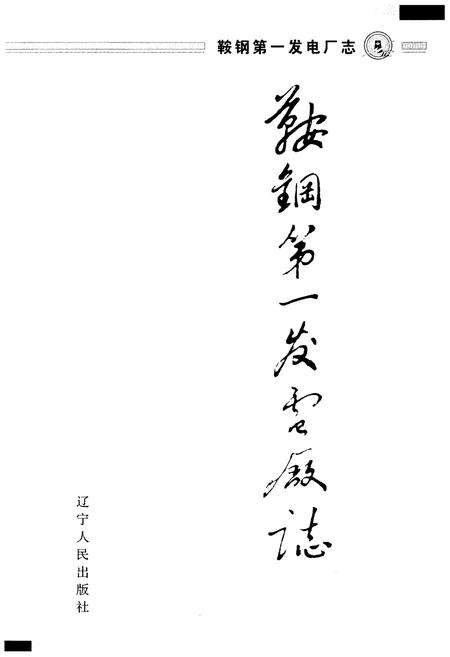 鞍钢第一发电厂志
鞍鋼第一发電廠誌
辽宁人民出版社